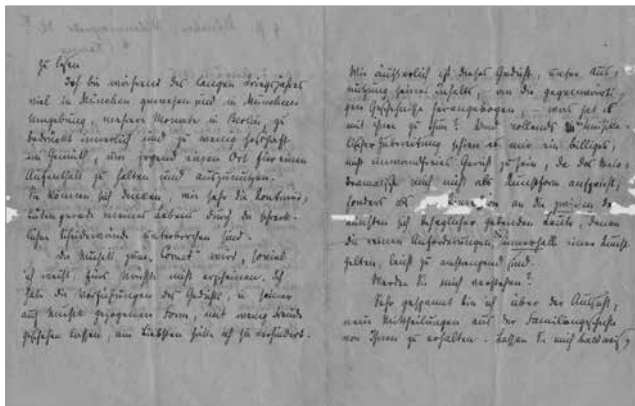 zu lesen
Ich bin während des langen Kriegsjahres
viel in München gewesen und in Münchens
Umgebung, mehrere Monate in Berlin, zu
bedrückt innerlich und zu wenig herzhaft
im Gemüth, um irgend einen Ort für einen
Aufenthalt zu halten und auszunutzen.
Sie können sich denken, wie sehr die Kontinui-
täten gerade meines Lebens durch die schreck-
lichen unterbrochen sind.
Die Musik zum "Cornet" wird, soviel
ich weiß, fürs Nächste nicht erscheinen. Ich
habe die Vorführungen des Gedichts, in seiner
auf Musik gezogenen Form, mit wenig Freude
geschehen lassen, am Liebsten hätte ich sie verhindert.
Wie äußerlich ist dieses Gedicht, unter Aus-
nutzung seines Inhalts, an die gegenwärti-
gen Geschehnisse herangebogen, — was hat es
mit ihnen zu thun? Und vollends musika-
lischer Zubereitung schien es mir ein billiges,
nicht einwandfreies Gericht zu sein, da das Melo-
dramatische mich nicht als Kunstform anspricht,
sondern als an die
sich behaglicher gebenden Leute, denen
die reinen Anforderungen, innerhalb einer Kunst
gelten, leicht zu anstrengend sind.
Werden Sie mich verstehen?
Sehr gespannt bin ich über der Aussicht,
neue Mittheilungen aus der Familiengeschichte
von Ihnen zu erhalten. Lassen Sie mich bald